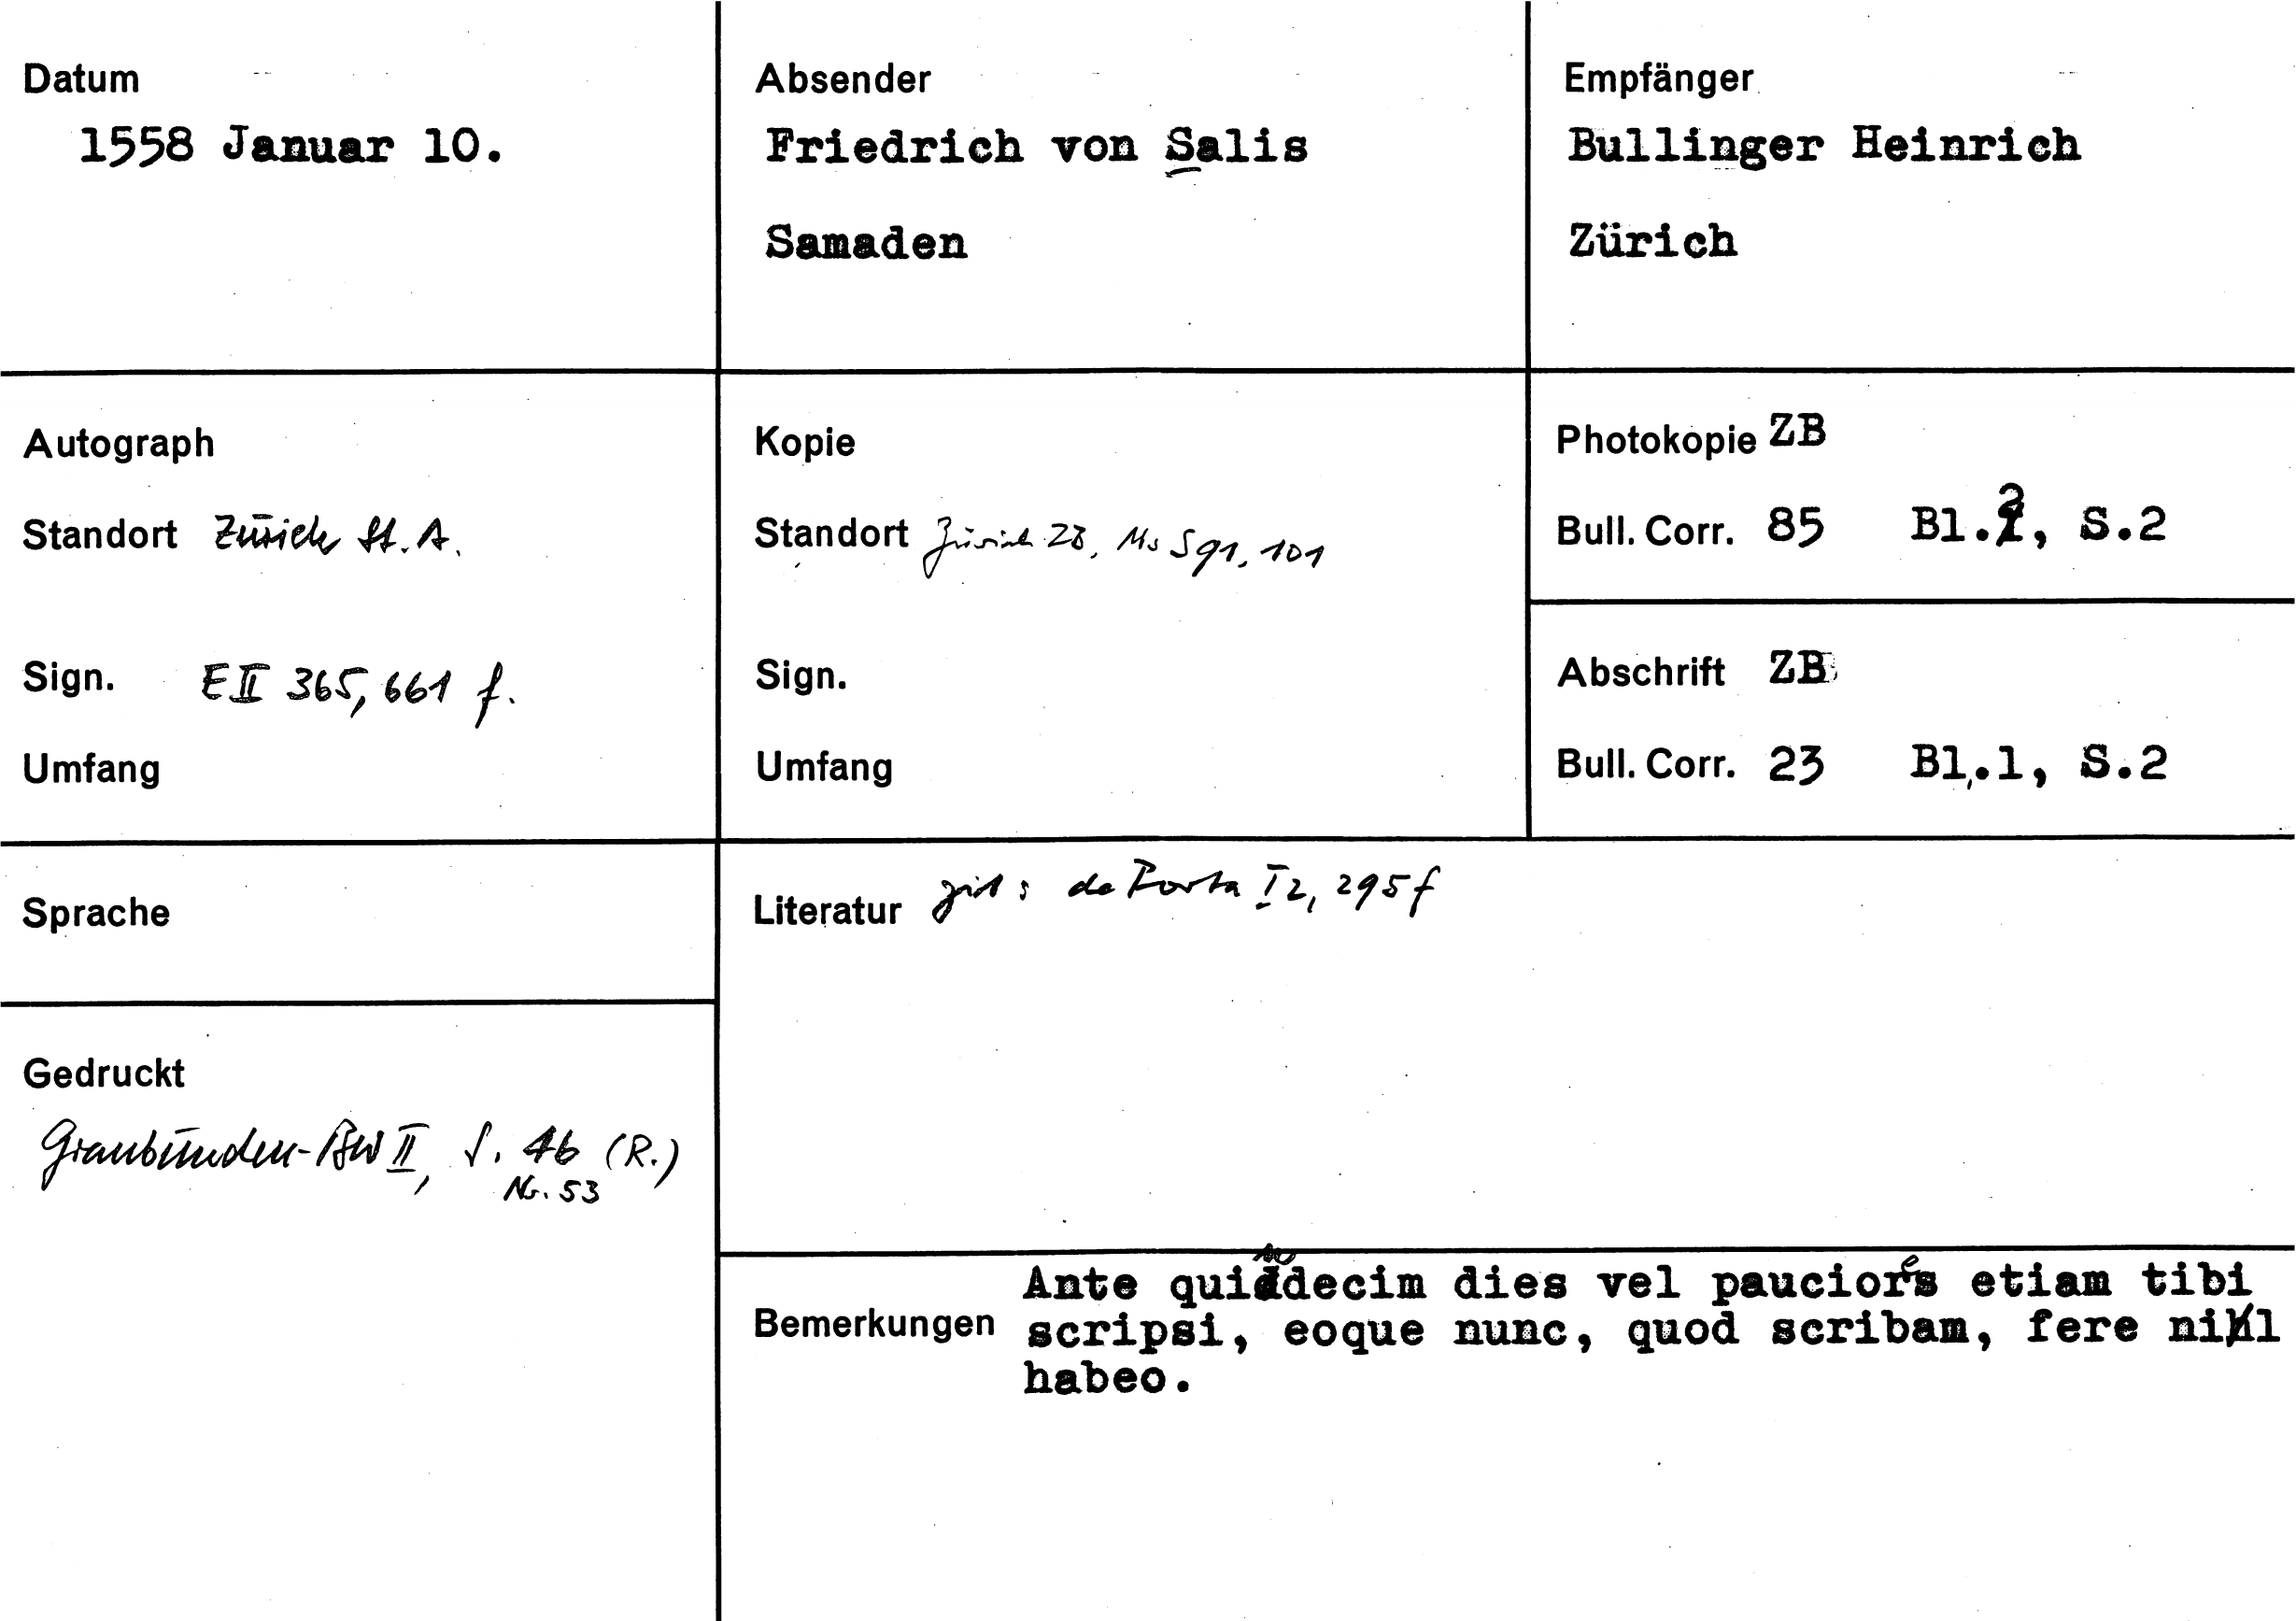 Datum
1558 Januar 10.
Absender
Friedrich von Salis
Samaden
Empfänger
Bullinger Heinrich
Zürich
Autograph
Standort Zürich St. A.
Sign. E II 365, 661 f.
Umfang
Kopie
Standort Zürich ZB, Ms S 91, 101
Sign.
Umfang
Photokopie ZB
Bull. Corr. 85 Bl.2, S.2
Abschrift ZB
Bull. Corr. 23 Bl.1, S.2
Sprache
Literatur zit: de Porta I 2, 295 f
Gedruckt
Graubünden-BW II, S. 46 (R.)
Nr. 53
Bemerkungen
Ante quindecim dies vel pauciores etiam tibi
scripsi, eoque nunc, quod scribam, fere nihil
habeo.